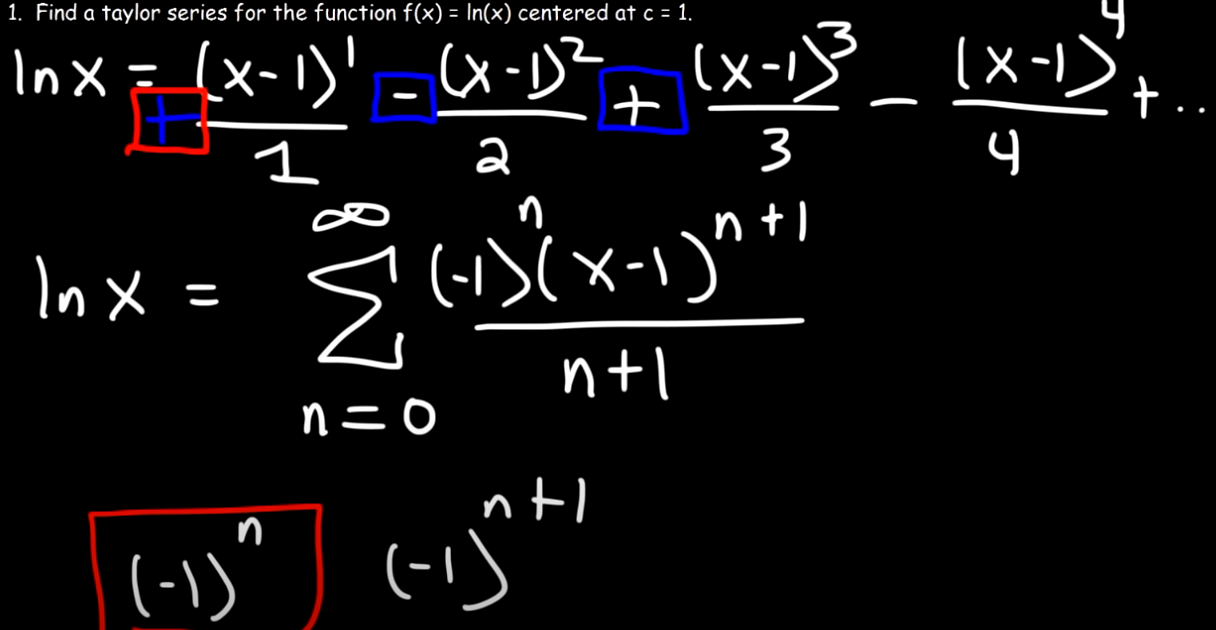 1. Find a taylor series for the function f(x) = ln(x) centered at c = 1.
ln x = + (x-1)¹/1 - (x-1)²/2 + (x-1)³/3 - (x-1)⁴/4 + ..
ln x = ∞ Σ n=0 (-1)ⁿ(x-1)ⁿ⁺¹/n+1
(-1)ⁿ (-1)ⁿ⁺¹